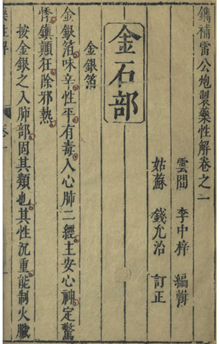 鐫補雷公炮製藥性解卷之二
雲間 李中梓 編輯
姑蘇 錢允治 訂正
金石部
金銀箔
金銀箔味辛性平有毒入心肺二經主安心神定驚
悸鎮顛狂除邪熱
按金銀之入肺部固其類也其性沉重能制火臟